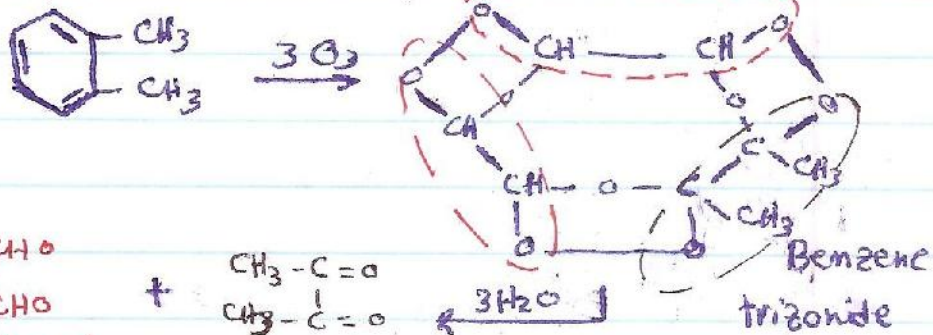 CH3
CH3
3 O3
O O CH CH O O
O O
CH C CH3
CH - O - C CH3
O O
Benzene
trizonide
CHO
CHO
+
CH3 - C = O
CH3 - C = O
3H2O